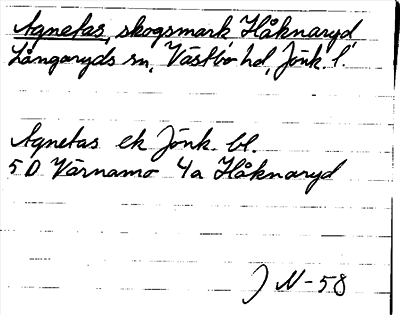 Agnetas, skogsmark Håknaryd
Långaryds sn, Västbo hd, Jönk. l.
Agnetas ek Jönk. bl.
5D Värnamo 4a Håknaryd
) N-58